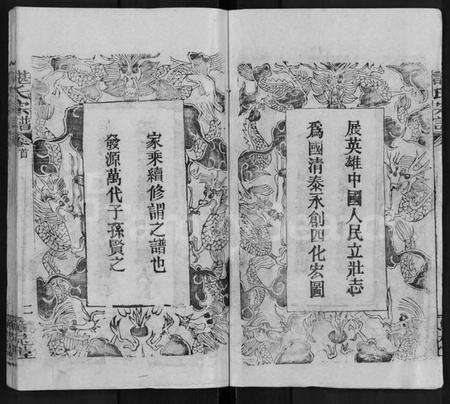 展英雄中國人民立壯志
爲國清泰永創四化宏圖
家乘續修謂之譜也
發源萬代子孫賢之
氏宗譜
卷首